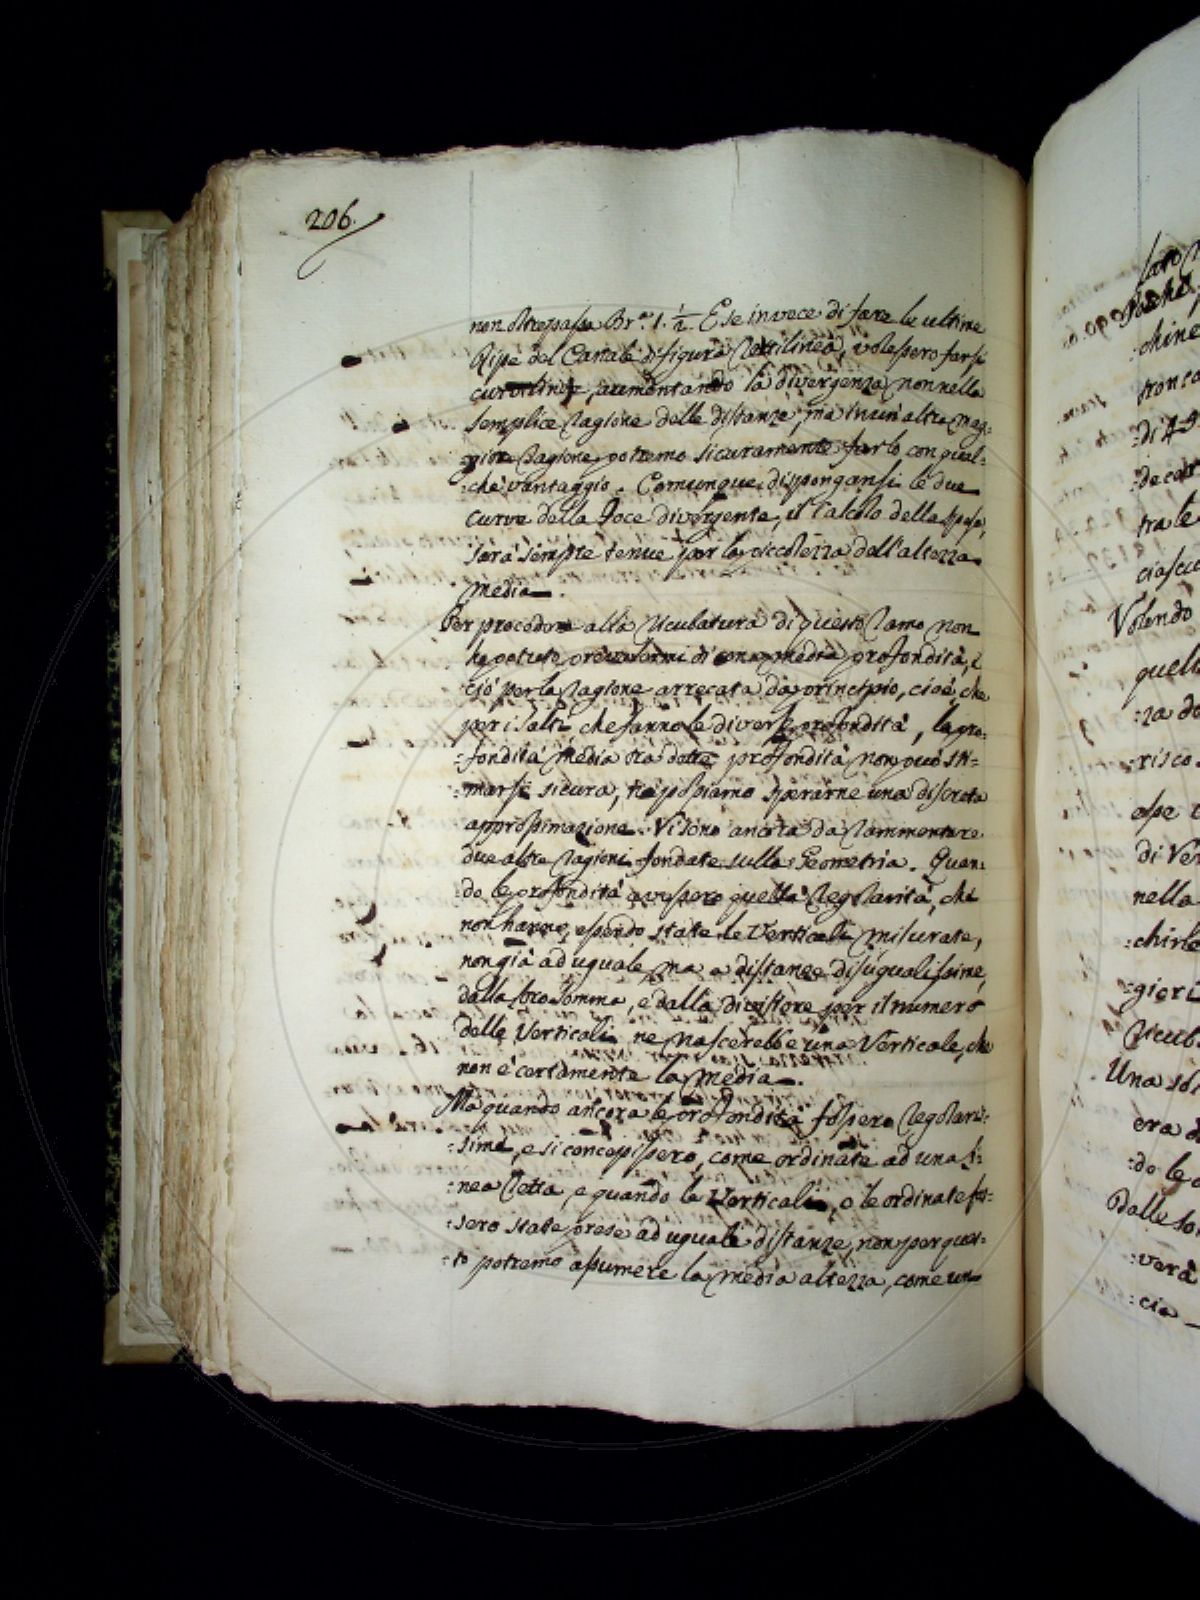 206.
non oltrepassa Br.ᵃ 1. ½. E se invece di fare le ultime
Ripe del Canale di figura Rettilinea, volessero farsi
curvilinee, aumentando la divergenza non nella
semplice Ragione delle distanze, ma in un'altra mag=
=giore Ragione, potremo sicuramente farlo con qual=
=che vantaggio. Comunque dispongansi le due
curve della Foce divergente, il Calcolo della spesa,
sarà sempre tenue per la piccolezza dell'altezza
media.
Per procedere alla Ricubatura di questo Ramo non
ho potuto prevalermi di una media profondità, e
ciò per la Ragione arrecata da principio, cioè, che
per i salti che fanno le diverse profondità, la pro=
=fondità media tra dette profondità non può sti=
=marsi sicura, nè possiamo sperarne una discreta
approssimazione. Vi sono ancora da Rammentare
due altre Ragioni fondate sulla Geometria. Quan=
=do le profondità avessero quella Regolarità, che
non hanno, essendo state le Verticali misurate,
non già ad uguale, ma a distanze disugualissime,
dalla loro Somma, e dalla divisione per il numero
delle Verticali ne nascerebbe una Verticale, che
non è certamente la media.
Ma quando ancora le profondità fossero Regolaris=
=sime, e si concepissero, come ordinate ad una li=
=nea Retta, e quando le Verticali, o le ordinate fos=
=sero state prese ad uguali distanze, non per ques=
=to potremo assumere la media altezza, come un
chine
di Ver
nella
Una